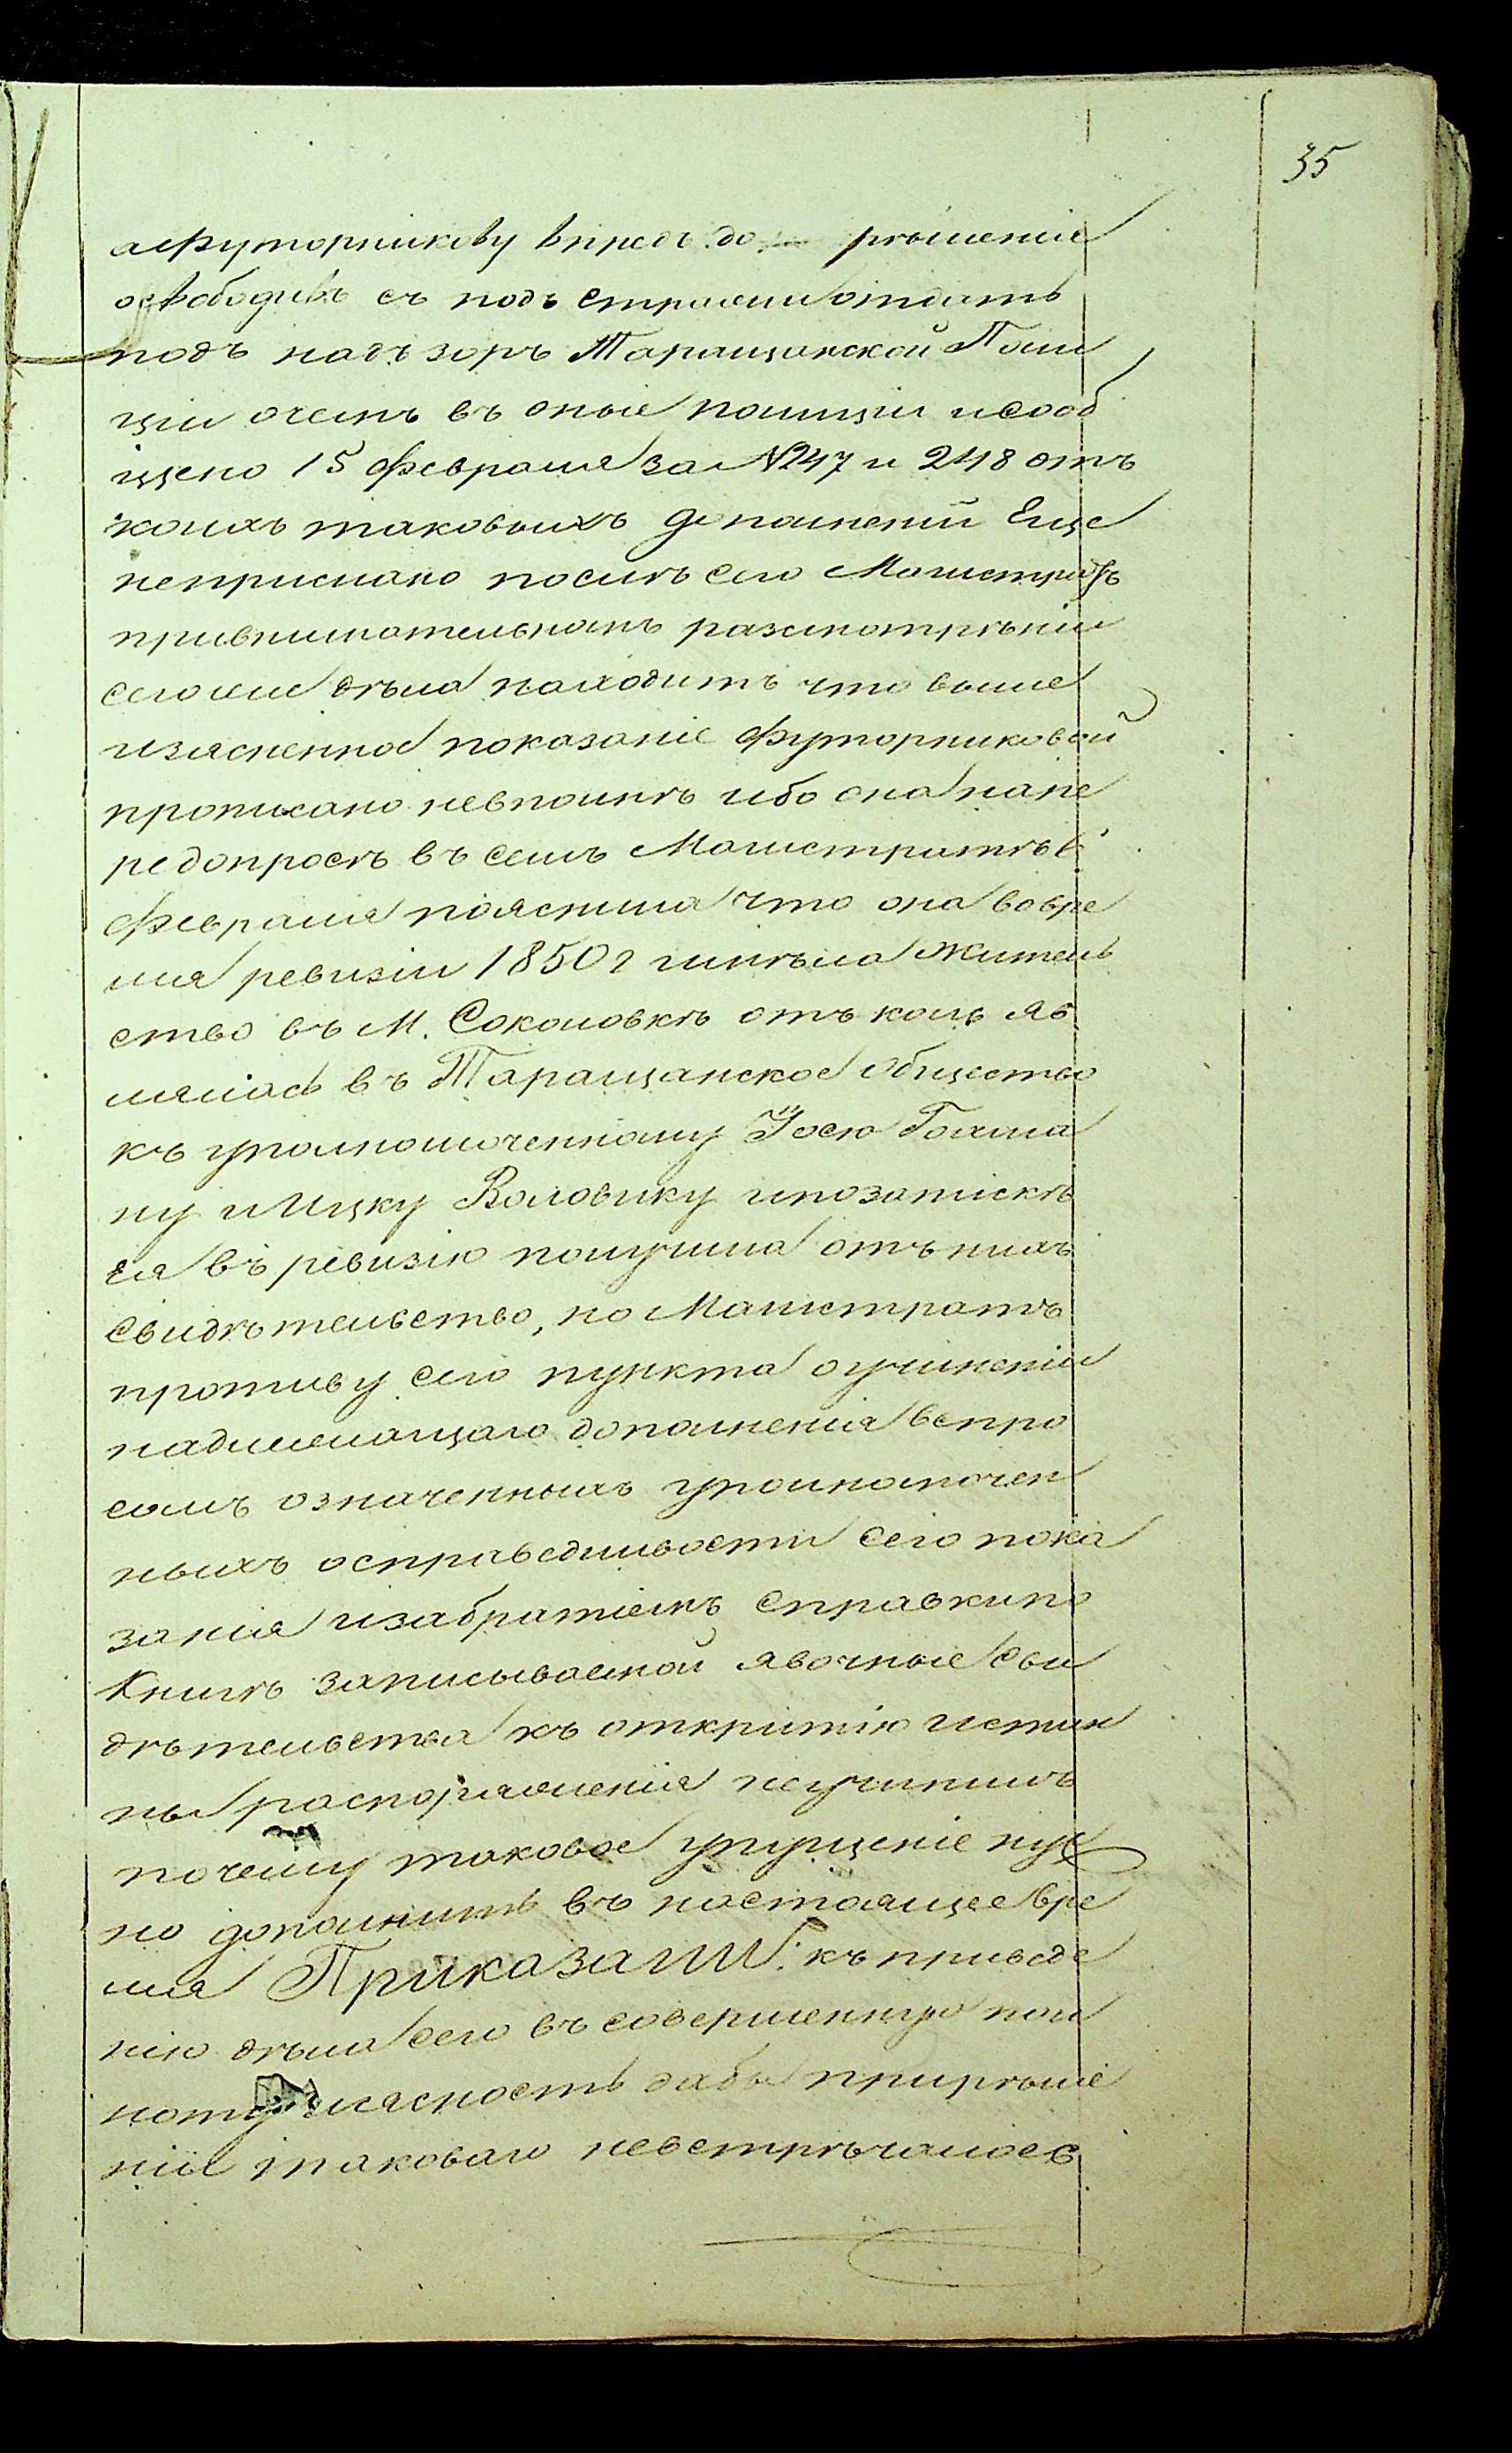 35
аФуторникову впредь до рѣшенія
освободивъ съ подъ стражи отдать
подъ надъзоръ Таращанской Поли
ціи очемъ въ оные полиціи исооб
щено 15 февраля за №247 и 248 отъ
коихъ таковыхъ дополненій Еще
неприслано посимъ сего Магистратъ
привнимательномъ разсмотрѣніи
сего дѣла находитъ что выше
изясненное показаніе Футорниковой
прописано невполнѣ ибо она напе
редопросѣ въ семъ Магистратѣ 6
февраля пояснила что она вовре
мя ревизіи 1850 г имѣла житель
ство въ М. Соколовкѣ отъ коль яв
лялась въ Таращанское общество
къ уполномоченному Іосю Гохма
ну и Ицку Воловику ипозапискѣ
ея въ ревизію получила отъ нихъ
свидѣтельство, но Магистратъ
противу сего пункта оучиненіи
надлежащаго дополненія вспро
сомъ означенныхъ уполномочен
ныхъ осправедливости сего пока
занія изабратіемъ справки по
Книгѣ записываемой явочные сви
дѣтельства къ открытію истин
ны распоряженія неучинилъ
почему таковое упущеніе нуж
но дополнить въ настоящее вре
мя Приказали: къ приведе
нію дѣла сего въ совершенную пол
ноту иясность дабы прирѣше
ніи таковаго невстрѣчалось